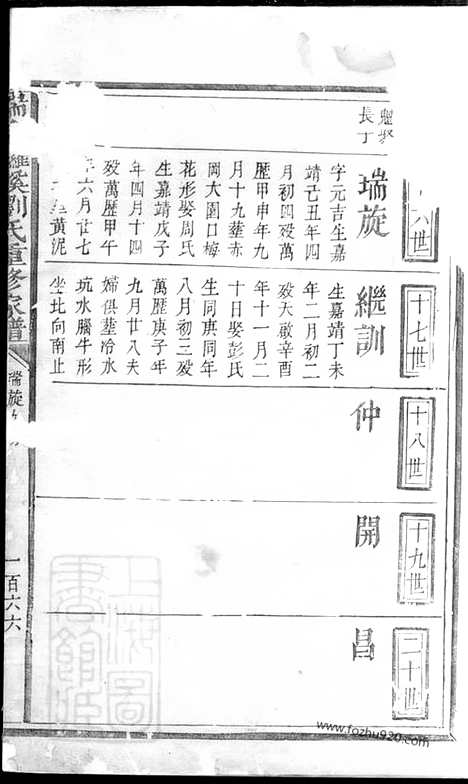 長丁
六世
瑞旋
字元吉生嘉
靖己丑年四
月初四歿萬
歷甲申年九
月十九塟赤
岡大園口梅
花形娶周氏
生嘉靖戊子
年四月十四
歿萬歷甲午
年六月廿七
塟黃泥
十七世
繼訓
生嘉靖丁未
年二月初二
歿天啟辛酉
年十一月二
十日娶彭氏
生同庚同年
八月初三歿
萬歷庚子年
九月廿八夫
婦俱塟冷水
坑水腦牛形
坐北向南止
十八世
仲
十九世
開
二十世
昌
溪劉氏重修家譜
瑞旋
一百六六
上海圖
書館藏
www.fozhu920.com